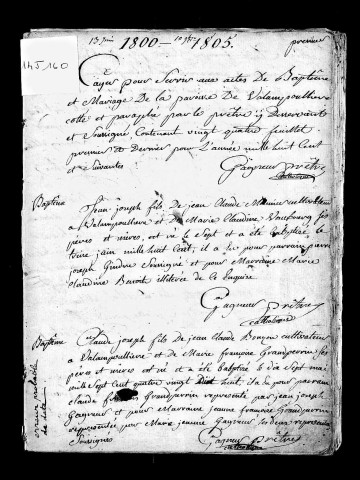 13 Juin 10 9bre
1800 — 1805.
premier
145,160
Cayer pour servir aux actes De Baptême
et Mariage De La paroisse De Valempoulliere
cotté et paraphé par le prêtre y Desservant
et Soussigné, Contenant vingt quatre feuillet
premier et Dernier pour L'année mille huit Cent
et Suivantes
Gagneur prêtre
Baptême
Jean joseph fils de jean Claude Meunier cultivateur
a Valempoulliere et De Marie Claudine
pères et mères, est né le Sept et a été baptisé le
treize juin mille huit Cent, il a eu pour parrain pierre
joseph Gindre Soussigné et pour Marraine Marie
claudine Benoit illiterée de ce Enquise
Gagneur prêtre
catholique
Baptême
Claude joseph fils de jean Claude cultivateur
a Valempoulliere et de Marie françoise Grandperrin ses
pères et mères est né et a été baptisé le dix Sept mai
mille Sept Cent quatre vingt huit, il a eu pour parrain
claude Grandperrin representé par jean joseph
Gagneur et pour Marraine jeanne françoise Grandperrin
representée par Marie jeanne Gagneur les deux representants
Soussignés
Gagneur prêtre
catholique
erreur probable
de date